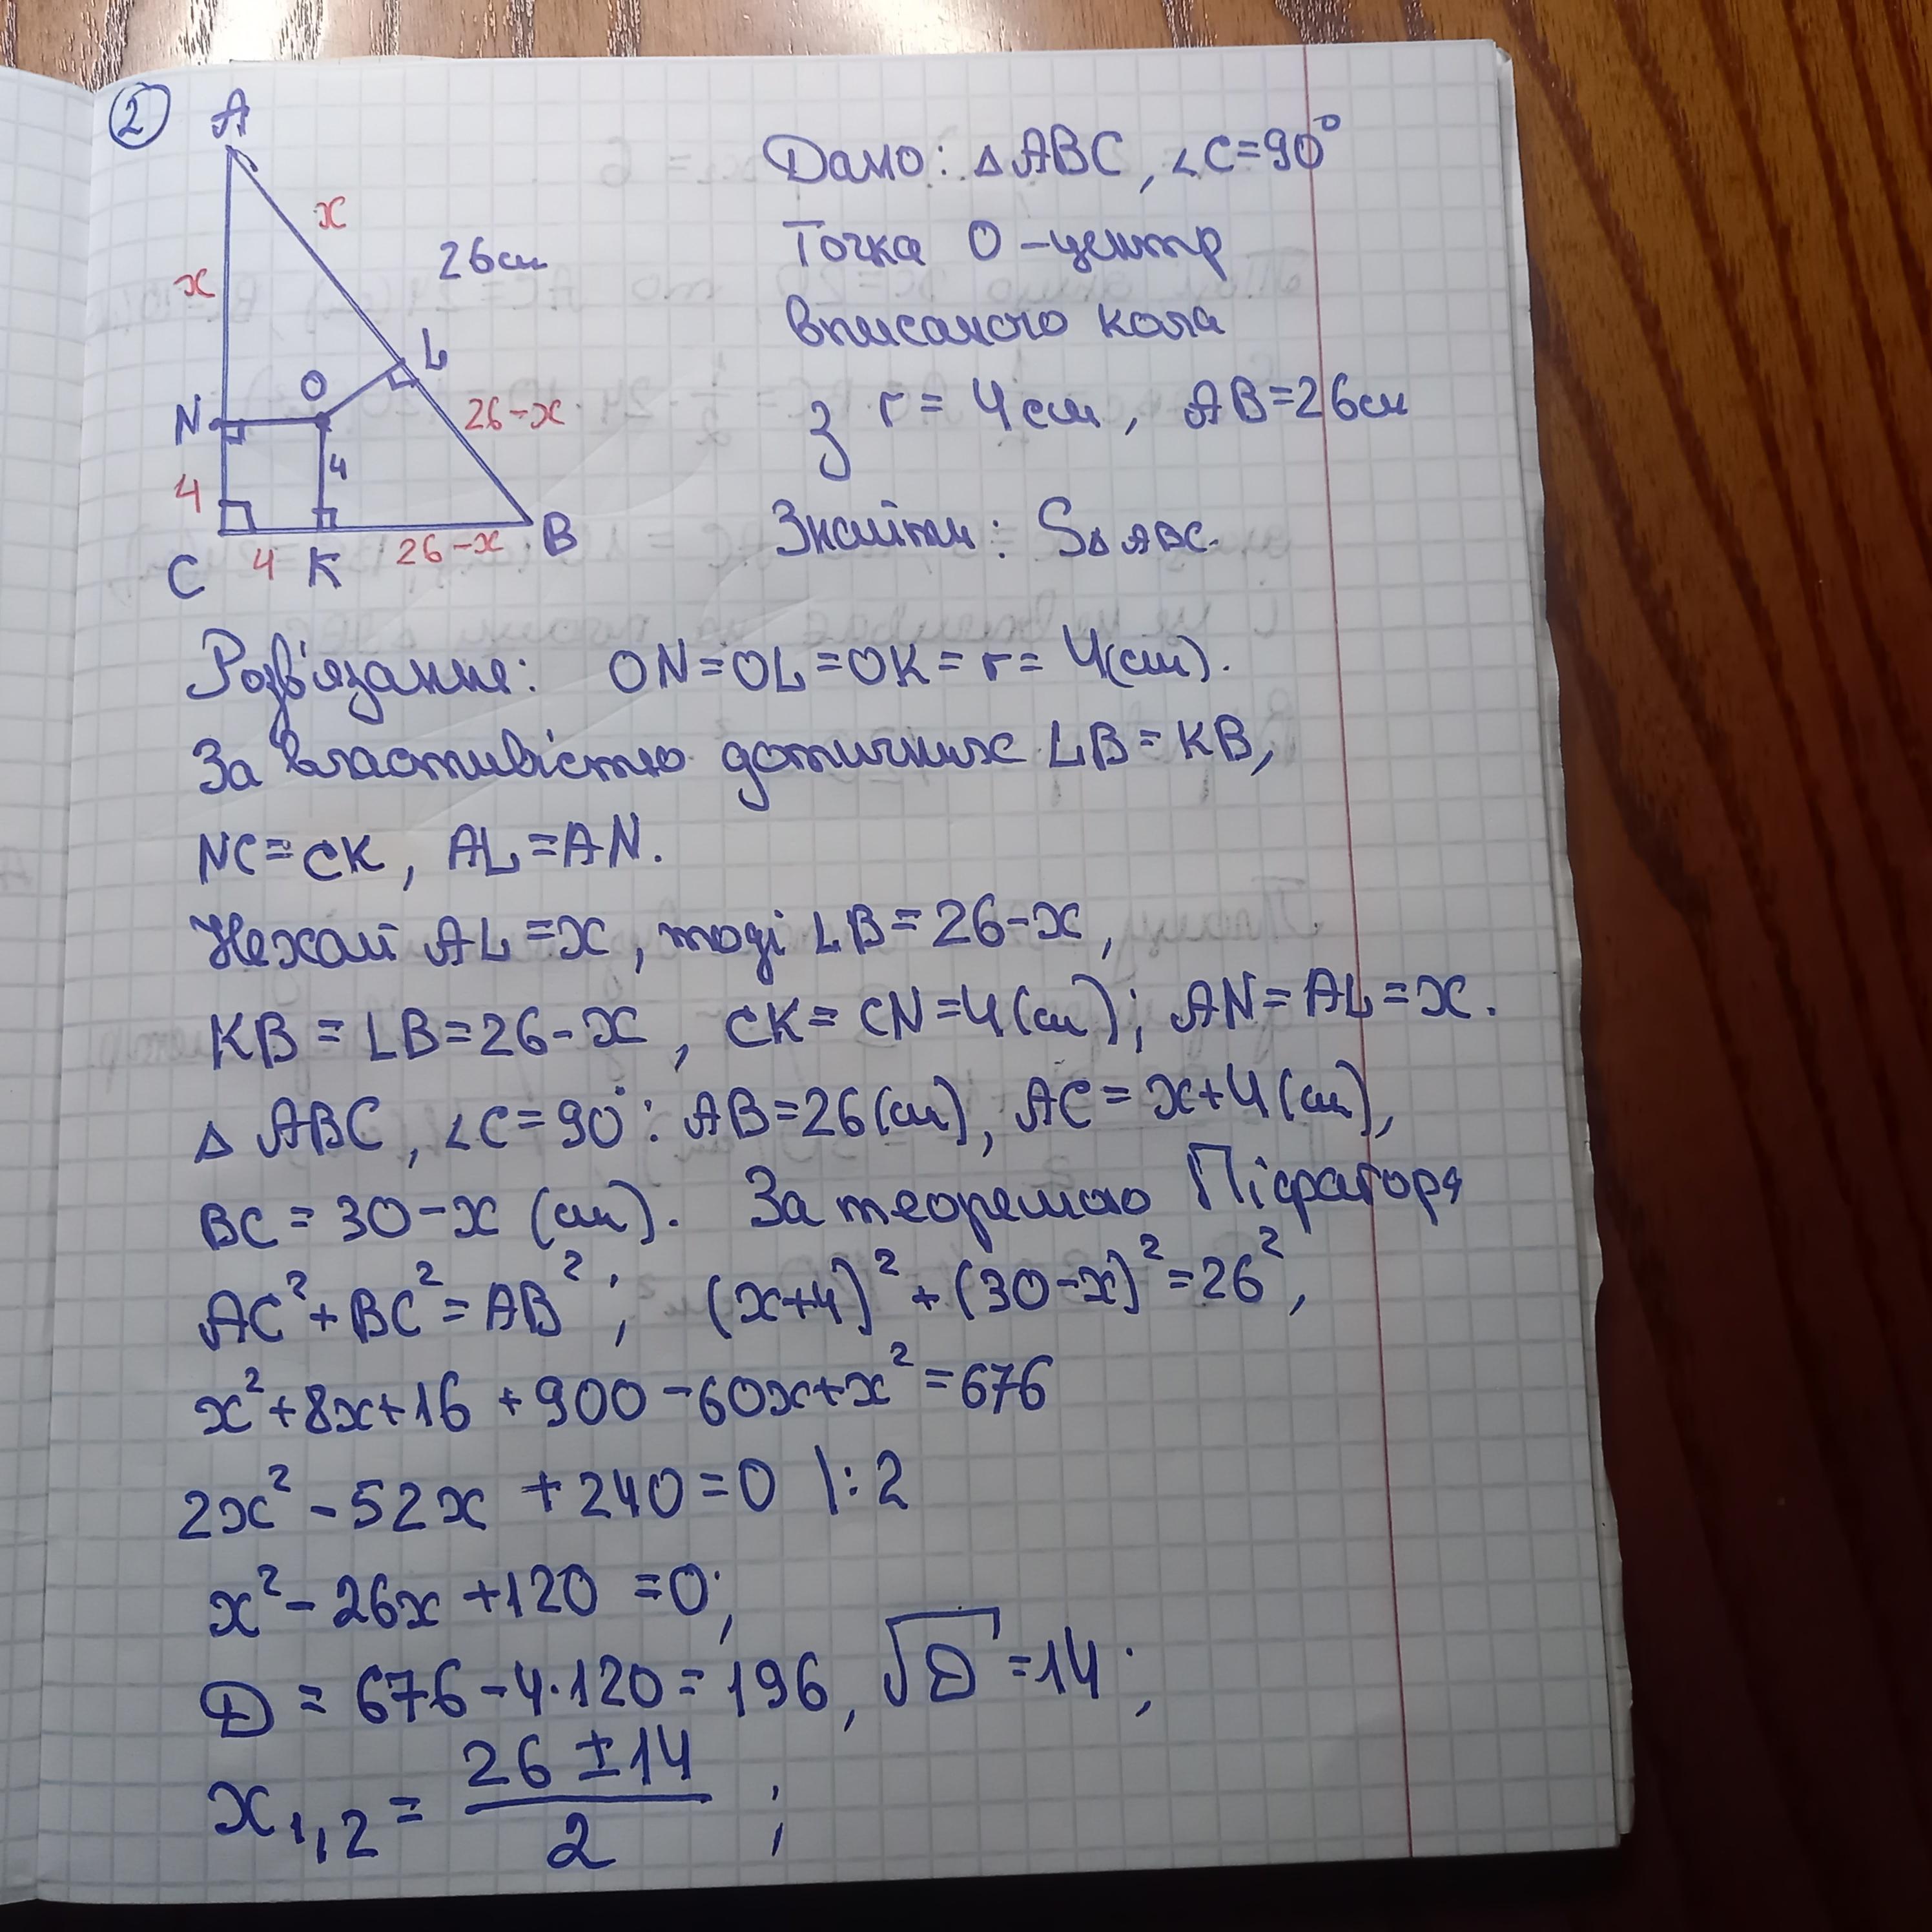 2
A
x
26см
x
L
O
N
26-x
4
4
C
4
K
26-x
B
Дано: △ABC, ∠C=90°
Точка O – центр
вписаного кола
з r = 4см, AB=26см
Знайти: S△ABC.
Розв'язання: ON=OL=OK=r=4(см).
За властивістю дотичних LB=KB,
NC=CK, AL=AN.
Нехай AL=x, тоді LB=26-x,
KB=LB=26-x, CK=CN=4(см); AN=AL=x.
△ABC, ∠C=90°: AB=26(см), AC=x+4(см),
BC=30-x (см). За теоремою Піфагора
AC²+BC²=AB²; (x+4)²+(30-x)²=26²,
x²+8x+16+900-60x+x²=676
2x²-52x+240=0 |:2
x²-26x+120=0;
D=676-4·120=196, √D=14;
x₁,₂ = (26±14)/2 ;